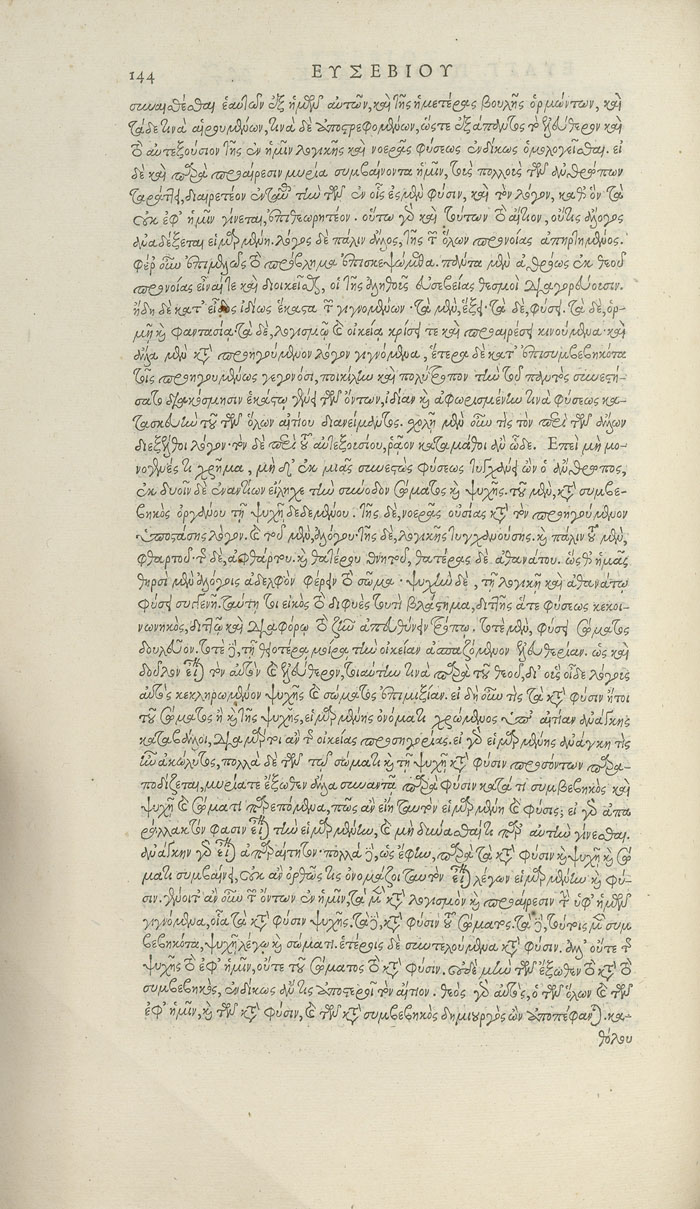 144 ΕΥΣΕΒΙΟΥ
συναισθέσθαι ἑαυτῶν ἐξ ἡμῶν αὐτῶν, καὶ τῆς ἡμετέρας βουλῆς ὁρμώντων, καὶ
τάδε τινὰ αἱρουμένων, τινὰ δὲ ἀποστρεφομένων, ὥστε ἐξάπαντος τὸ ἐλεύθερον καὶ
τὸ αὐτεξούσιον τῆς ἐν ἡμῖν λογικῆς καὶ νοερᾶς φύσεως ἐνδίκως ὁμολογεῖσθαι. εἰ
δὲ καὶ παρὰ προαίρεσιν μυρία συμβαίνοντα ἡμῖν, τοὺς πολλοὺς τῶν ἀνθρώπων
ταράττει, διαιρετέον ἐνταῦθα τὴν τῶν ἐν οἷς ἐσμὲν φύσιν, καὶ τὸν λόγον, καθ' ὃν τὰ
οὐκ ἐφ' ἡμῖν γίνεται, ἐπιθεωρητέον. οὕτω γὰρ καὶ τούτων τὸ αἴτιον, οὔτις ἄλογος
ἀναδέξεται εἱμαρμένη. λόγος δὲ πάλιν ἄλλος, τῆς τῶν ὅλων προνοίας ἀπηρτημένος.
Φέρ' οὖν ἐπιμελῶς τὸ πρόβλημα ἐπισκεψώμεθα. πάντα μὲν ἀθρόως ἐκ θεοῦ
προνοίας εἶναί τε καὶ διοικεῖσθαι, οἱ τῆς ἀληθοῦς εὐσεβείας θεσμοὶ διαγορεύουσιν.
ἤδη δὲ κατ' εἶδος ἰδίως ἕκαστα τῶν γιγνομένων· τὰ μὲν, ἕξει· τὰ δὲ, φύσει. τὰ δὲ, ὁρ-
μῇ καὶ φαντασίᾳ. τὰ δὲ, λογισμῷ καὶ οἰκείᾳ κρίσει τε καὶ προαιρέσει κινούμενα· καὶ
ἄλλα μὲν κατὰ προηγούμενον λόγον γιγνόμενα, ἕτερα δὲ κατ' ἐπισυμβεβηκότα
τοῖς προηγουμένως γεγονόσι, ποικίλην καὶ πολύτροπον τὴν τοῦ παντὸς συνεστή-
σατο διακόσμησιν ἑκάστῳ γένει τῶν ὄντων, ἰδίαν καὶ ἀφωρισμένην τινὰ φύσεως κα-
τασκευὴν τοῦ τῶν ὅλων αἰτίου διανείμαντος. σχολῇ μὲν οὖν τις τὸν περὶ τῶν ἄλλων
διεξέλθοι λόγον· τὸν δὲ περὶ τοῦ αὐτεξουσίου, ῥᾷον καταμάθοι ἂν ὧδε. Ἐπεὶ μὴ μο-
νογενές τι χρῆμα, μὴ δ' ἐκ μιᾶς συνεστὼς φύσεως τυγχάνει ὢν ὁ ἄνθρωπος,
ἐκ δυοῖν δὲ ἐναντίων εἴληχε τὴν σύνοδον σώματος καὶ ψυχῆς. τοῦ μὲν, κατὰ συμβε-
βηκὸς ὀργάνου τῇ ψυχῇ δεδεμένου. τῆς δὲ, νοερᾶς οὐσίας κατὰ τὸν προηγούμενον
ὑποστάσης λόγον. καὶ τοῦ μὲν, ἀλόγου. τῆς δὲ, λογικῆς τυγχανούσης. καὶ πάλιν τοῦ μὲν,
φθαρτοῦ· τῆς δὲ, ἀφθάρτου. καὶ θατέρου θνητοῦ, θατέρας δὲ ἀθανάτου. ὥσθ' ἡμᾶς
θηρσὶ μὲν ἀλόγοις ἀδελφὸν φέρειν τὸ σῶμα· ψυχὴν δὲ, τῇ λογικῇ καὶ ἀθανάτῳ
φύσει συγγενῆ. ταύτῃ τοι εἰκὸς τὸ διφυὲς τουτὶ βλάστημα, διττῆς ἅτε φύσεως κεκοι-
νωνηκὸς, διττῷ καὶ διαφόρῳ τὸ ζῆν ἀπευθύνειν τρόπῳ. τοτὲ μὲν, φύσει σώματος
δουλεῦον. τοτὲ δὲ, τῇ θειοτέρᾳ μοίρᾳ τὴν οἰκείαν ἀσπαζόμενον ἐλευθερίαν. ὡς καὶ
δοῦλον εἶναι τὸν αὐτὸν καὶ ἐλεύθερον, τοιαύτην τινὰ παρὰ τοῦ θεοῦ, δι' οὓς οἶδε λόγους
αὐτὸς κεκληρωμένον ψυχῆς καὶ σώματος ἐπιμιξίαν. εἰ δὴ οὖν τις τὰ κατὰ φύσιν ἤτοι
τοῦ σώματος ἢ καὶ τῆς ψυχῆς, εἱμαρμένης ὀνόματι χρώμενος ὑπ' αἰτίαν ἀνάγκης
καταβάλλοι, διαμάρτοι ἂν τῆς οἰκείας προσηγορίας. εἰ γὰρ εἱμαρμένης ἀνάγκη τις
ἦν ἀκώλυτος, πολλὰ δὲ τῶν τοῦ σώματι καὶ τῇ ψυχῇ κατὰ φύσιν προσόντων παρα-
ποδίζεται, μυρία τε ἔξωθεν ἄλλα συναντᾷ παρὰ φύσιν κατά τι συμβεβηκὸς καὶ
ψυχῇ καὶ σώματι παρεπόμενα, πῶς ἂν εἴη ταυτὸν εἱμαρμένη καὶ φύσις; εἰ γὰρ ἀπα-
ράλλακτόν φασιν εἶναι τὴν εἱμαρμένην, καὶ μὴ δύνασθαί τι παρ' αὐτὴν γίνεσθαι.
ἀνάγκην γὰρ εἶναι ἀπαραίτητον· πολλὰ δὲ, ὡς ἔφην, παρὰ τὰ κατὰ φύσιν καὶ ψυχῇ καὶ σώ-
ματι συμβαίνει, οὐκ ἂν ὀρθῶς τις ὀνομάζοι ταυτὸν εἶναι λέγων εἱμαρμένην καὶ φύ-
σιν. γένοιτ' ἂν οὖν τῶν ὄντων ἐν ἡμῖν, τὰ μὲν κατὰ λογισμὸν καὶ προαίρεσιν τὴν ὑφ' ἡμῶν
γιγνόμενα, οἷα τὰ κατὰ φύσιν ψυχῆς. τὰ δὲ, κατὰ φύσιν τοῦ σώματος. τὰ δὲ, τούτοις μὲν συμ-
βεβηκότα, ψυχῇ λέγω καὶ σώματι. ἑτέροις δὲ συντελούμενα κατὰ φύσιν. ἀλλ' οὔτε τῆς
ψυχῆς τὸ ἐφ' ἡμῖν, οὔτε τοῦ σώματος τὸ κατὰ φύσιν. οὐδὲ μὴν τῶν ἔξωθεν τὸ κατὰ τὸ
συμβεβηκὸς, ἐνδίκως ἄν τις ἀποστεροῖ τὸν αἴτιον. θεὸς γὰρ αὐτὸς, ὁ τῶν ὅλων καὶ τῶν
ἐφ' ἡμῖν, καὶ τῶν κατὰ φύσιν, καὶ τῶν κατὰ συμβεβηκὸς δημιουργὸς ὢν ἀποπέφανται. κα-
θόλου